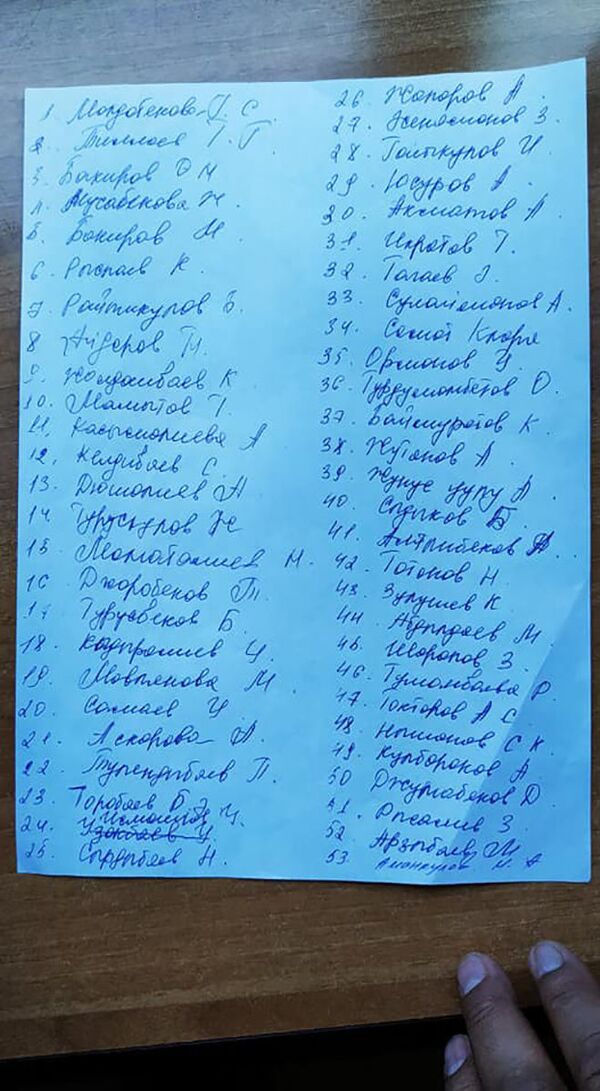 1. Молдобекова Г. С.
2. Тиллаев Т. Т.
3. Бакиров Э М
4. Мусабекова Ж.
5. Бакиров М
6. Рыспаев К.
7. Райымкулов Б.
8 Айдаров Ы.
9. Жолдошбаев К
10. Мамытов Т.
11. Касымалиева А
12. Келдибаев С.
13. Дюшалиев А
14 Турускулов Ж
15. Маматалиев М.
16 Джоробеков П.
17 Турусбеков Б.
18. Кадыралиев Ч.
19. Мовлянова М.
20. Самаев У.
21. Аскарова А.
22. Тулендыбаев П.
23. Торобаев Б Э
24. Исмаилов Ч.
25. Сыдыбаев Н.
26. Жапоров А.
27. Жеңалионов З.
28. Гайыкулов И.
29. Юсуров А
30. Акматов А.
31. Икратов Т.
32. Тагаев Э.
33. Сулайманов А.
34. Самат Клара
35. Ормонов У.
36. Турдумамбетов О.
37. Баймуратов К.
38. Жутанов А.
39. Жунус уулу А.
40. Сыдыков Б.
41. Алымбеков А.
42. Тотонов Н.
43. Зулушев К.
44. Абдылдаев М.
45. Шарапов З.
46. Туманбаева Р.
47. Токторов А С.
48. Нышанов С К.
49. Кулбораков А.
50 Джумабеков Д.
51. Рысалиев З.
52. Арзыбаев М
53.